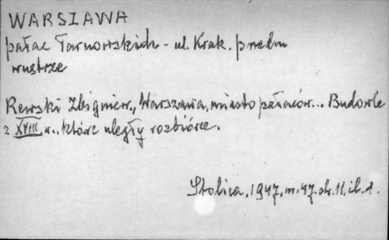 WARSZAWA
pałac Tarnowskich - ul. Krak. przedm
wnętrze
Rewski Zbigniew, Warszawa, miasto pałaców... Budowle
z XVIII w., które uległy rozbiórce.
Stolica, 1947, nr. 47, ok. 11. il. 1.